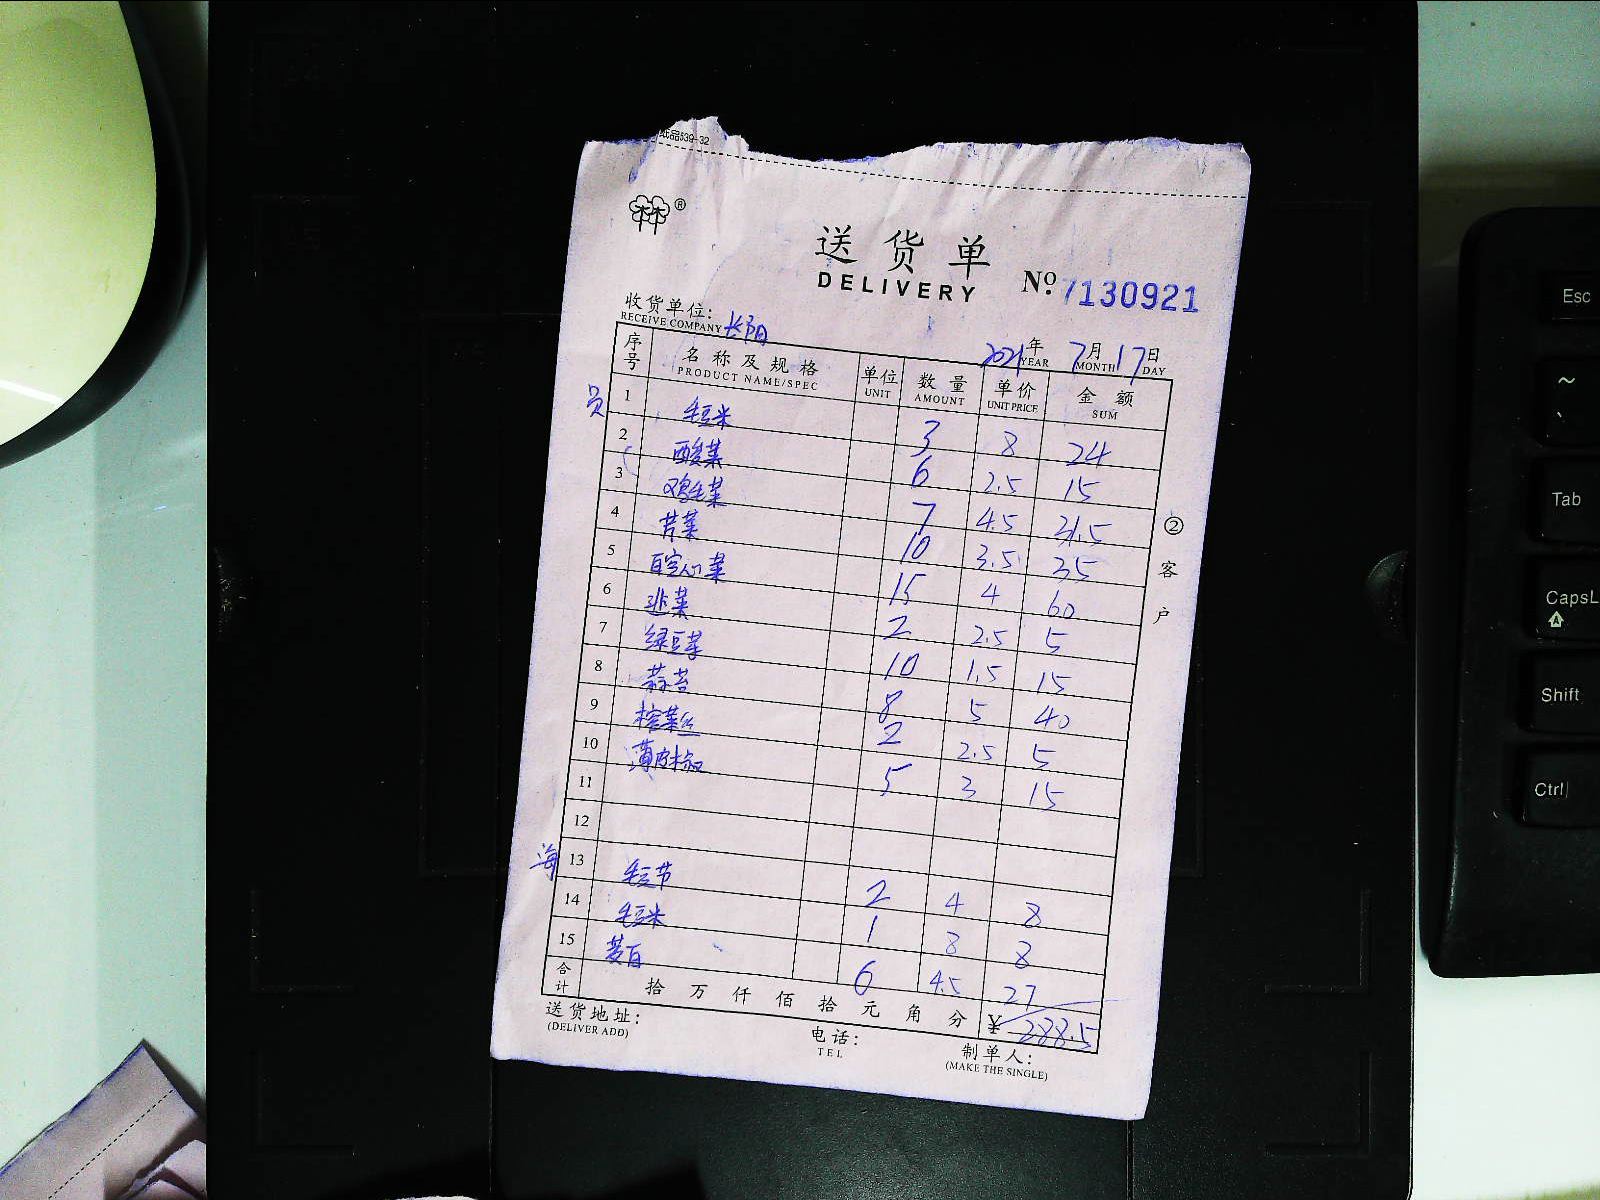 纸品539-32
林 ®
送货单
DELIVERY
No. 7130921
收货单位: 长阳
RECEIVE COMPANY
2021年 7月 17日
YEAR MONTH DAY
序号 名称及规格 单位 数量 单价 金额
PRODUCT NAME/SPEC UNIT AMOUNT UNIT PRICE SUM
员 1 毛豆米 3 8 24
2 酸菜 6 2.5 15
3 鸡毛菜 7 4.5 31.5
4 芹菜 10 3.5 35
5 空心菜 15 4 60
6 韭菜 2 2.5 5
7 绿豆芽 10 1.5 15
8 蒜苔 8 5 40
9 榨菜丝 2 2.5 5
10 薄皮椒 5 3 15
11
12
海 13 毛豆节 2 4 8
14 毛豆米 1 8 8
15 茭白 6 4.5 27
合计 拾 万 仟 佰 拾 元 角 分 ¥ 288.5
送货地址: 电话: 制单人:
(DELIVER ADD) TEL (MAKE THE SINGLE)
② 客户
Esc
~
`
Tab
CapsL
A
Shift
Ctrl